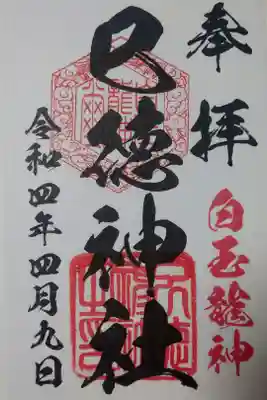 奉拝
白玉龍神
巳徳神社
令和四年四月九日